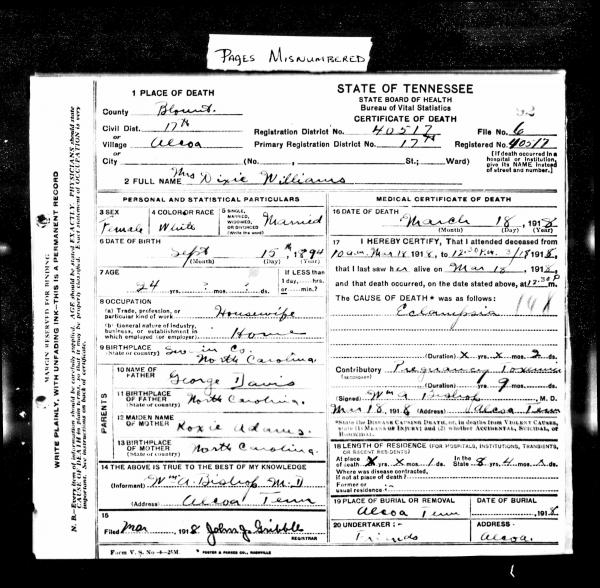 PAGES MISNUMBERED
1 PLACE OF DEATH
County Blount.
Civil Dist. 17th
or
Village Alcoa
or
City (No., St.; Ward)
STATE OF TENNESSEE
STATE BOARD OF HEALTH
Bureau of Vital Statistics
CERTIFICATE OF DEATH
Registration District No. 40517 File No. 6
Primary Registration District No. 17th Registered No. 40517
(If death occurred in a hospital or institution, give its NAME instead of street and number.)
2 FULL NAME Mrs Dixie Williams
PERSONAL AND STATISTICAL PARTICULARS
3 SEX Female
4 COLOR OR RACE White
5 SINGLE, MARRIED, WIDOWED, OR DIVORCED (Write the word) Married
6 DATE OF BIRTH
Sept 15th, 1894
(Month) (Day) (Year)
7 AGE
24 ? ? ds.
If LESS than
1 day, hrs.
or min.?
8 OCCUPATION
(a) Trade, profession, or particular kind of work Housewife
(b) General nature of industry, business, or establishment in which employed (or employer) Home
9 BIRTHPLACE
(State or country) Co.
North Carolina
PARENTS
10 NAME OF FATHER George Davis
11 BIRTHPLACE OF FATHER (State or country) North Carolina.
12 MAIDEN NAME OF MOTHER Roxie Adams.
13 BIRTHPLACE OF MOTHER (State or country) North Carolina.
14 THE ABOVE IS TRUE TO THE BEST OF MY KNOWLEDGE
(Informant) Wm A. Bishop M.D
(Address) Alcoa Tenn
15
Filed Mar 1918 John J. Gribble
REGISTRAR
MEDICAL CERTIFICATE OF DEATH
16 DATE OF DEATH
March 18, 1918
(Month) (Day) (Year)
17 I HEREBY CERTIFY, That I attended deceased from
10 a.m. Mar 18 1918, to 12:30 P.M. 3/18 1918,
that I last saw her alive on Mar 18, 1918,
and that death occurred, on the date stated above, at 12:30 P m.
The CAUSE OF DEATH* was as follows:
Eclampsia
(Duration) x yrs. x mos. 2 ds.
Contributory Pregnancy Toxemia
(Duration) yrs. 9 mos. ds.
(Signed) Wm A Bishop M. D.
Mar 18, 1918 (Address) Alcoa Tenn
*State the DISEASE CAUSING DEATH, or, in deaths from VIOLENT CAUSES, state (1) MEANS OF INJURY; and (2) whether ACCIDENTAL, SUICIDAL, or HOMICIDAL.
18 LENGTH OF RESIDENCE (FOR HOSPITALS, INSTITUTIONS, TRANSIENTS, OR RECENT RESIDENTS)
At place of death x yrs. x mos. 1 ds. In the State 8 yrs. 4 mos. x ds.
Where was disease contracted,
if not at place of death?
Former or
usual residence
19 PLACE OF BURIAL OR REMOVAL
Alcoa Tenn
DATE OF BURIAL
, 1918
20 UNDERTAKER
Friends
ADDRESS
Alcoa.
Form V. S. No-4-25M.
FOSTER & PARKES CO., NASHVILLE
MARGIN RESERVED FOR BINDING
WRITE PLAINLY, WITH UNFADING INK—THIS IS A PERMANENT RECORD
N. B.—Every item of information should be carefully supplied. AGE should be stated EXACTLY. PHYSICIANS should state CAUSE OF DEATH in plain terms, so that it may be properly classified. Exact statement of OCCUPATION is very important. See instructions on back of certificate.